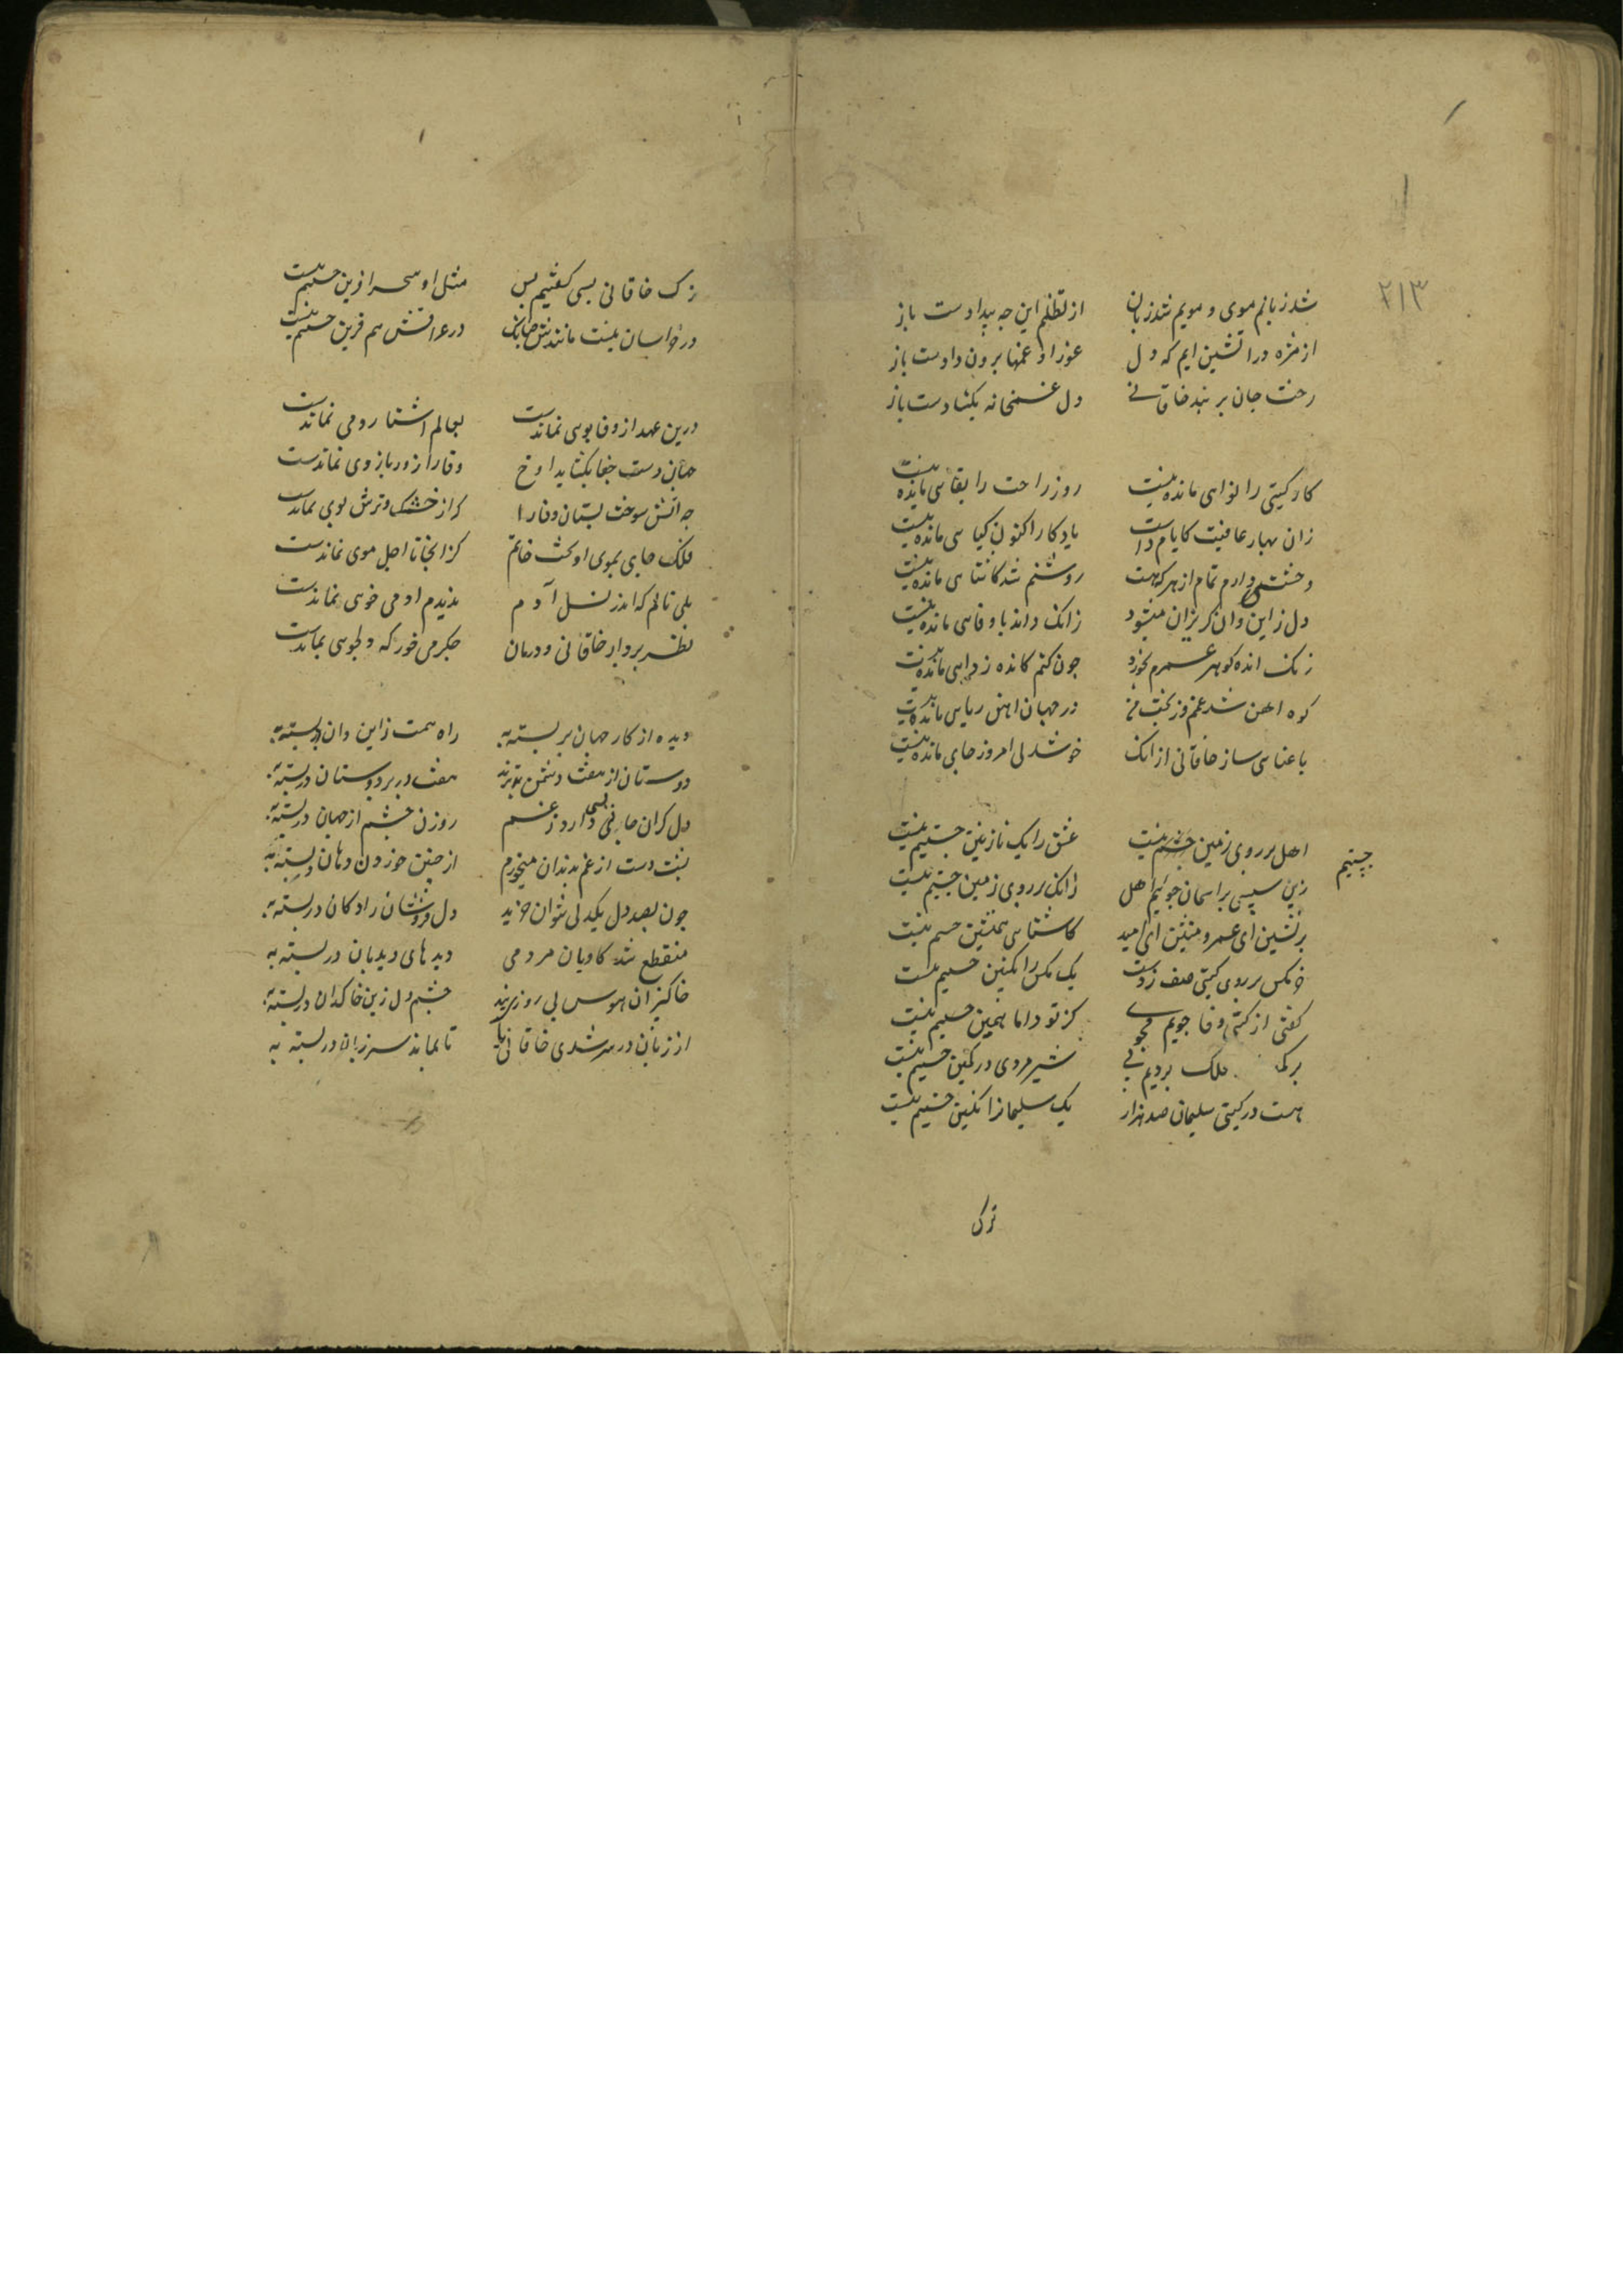 ۲۱۳
شد زبانم موی و مویم شد زبان از تظلم این چه بیدادست باز
از مژه در آتشین آبم که دل غمها برون دادست باز
رخت جان بربند خاقانی دل غمخانه بگشادست باز
کار گیتی را نوایی مانده نیست روز راحت را بقایی مانده نیست
زان بهار عافیت کایام داشت یادگار اکنون گیایی مانده نیست
وحشتی دارم تمام از هرکه هست روشنم شد کاشنایی مانده نیست
دل ازین و آن گریزان میشود زانک داند باوفایی مانده نیست
زنگ انده گوهر عمرم بخورد چون کنم کانده زدایی مانده نیست
کوه آهن شد غمم وز بخت من در جهان آهن ربایی مانده نیست
با عنا می ساز خاقانی از آنک خوشدلی امروز جایی مانده نیست
اهل بر روی زمین جستیم نیست عشق را یک نازنین جستیم نیست
جستیم
زین سپس بر آسمان جوییم اهل زانک بر روی زمین جستیم نیست
برنشین ای عمر و منشین ای امید کاشنایی همنشین جستیم نیست
خرمگس بر روی گیتی صف زدست یک مگس را انگبین جستیم نیست
گفتی از گیتی وفا جویم مجوی کز تو و اما همین جستیم نیست
بر فلک بردیم پی شیر مردی در کمین جستیم نیست
هست در گیتی سلیمان صد هزار یک سلیمانرا نگین جستیم نیست
ترک
ترک خاقانی بسی گفتیم بس مثل او سحر آفرین جستیم نیست
در خراسان نیست مانندش چنانک در عراقش هم قرین جستیم نیست
درین عهد از وفا بویی نماندست بعالم آشنا رویی نماندست
جهان دست جفا بگشاد آوخ وفا را زور بازوی نماندست
چه آتش سوخت بستان وفا را که از خشک و ترش بویی نماندست
فلک جایی بموی آویخت جانم کز آنجا تا اجل موی نماندست
بکی نالم که اندر نسل آدم بدیدم آدمی خویی نماندست
نظر بردار خاقانی و دونان جگر می خور که دلجویی نماندست
دیده از کار جهان بر بسته به راه همت زاین و آن در بسته به
دوستان از هفت دشمن بترند هفت در بر دوستان در بسته به
دل گران جانی بسی دارد ز غم روزن چشم از جهان در بسته به
پشت دست از غم بدندان میخورم از چنین خوردن دهان در بسته به
چون بصد دل یکدلی نتوان خرید دل فروشان را دکان در بسته به
منقطع شد کاروان مردمی دیدهای دیدبان در بسته به
خاکبیزان هوس بی روزیند چشم دل زین خاکدان در بسته به
از زبان در سر شدی خاقانیا تا بماند سر زبان در بسته به